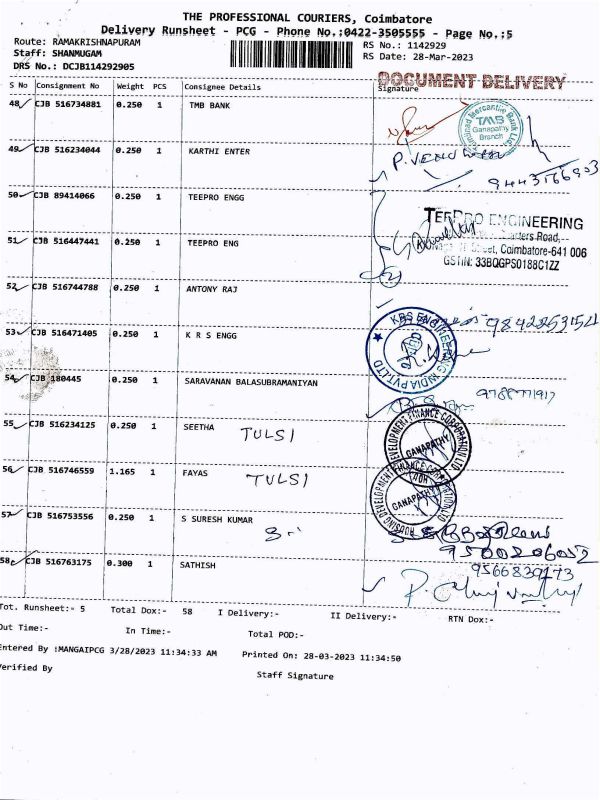 THE PROFESSIONAL COURIERS, Coimbatore
Delivery Runsheet - PCG - Phone No.:0422-3505555 - Page No.:5
Route: RAMAKRISHNAPURAM RS No.: 1142929
Staff: SHANMUGAM RS Date: 28-Mar-2023
DRS No.: DCJB114292905
DOCUMENT DELIVERY
S No Consignment No Weight PCS Consignee Details Signature
48 CJB 516734881 0.250 1 TMB BANK
TMB
Ganapathy
Branch
49 CJB 516234044 0.250 1 KARTHI ENTER
9443166903
50 CJB 89414066 0.250 1 TEEPRO ENGG
TEEPRO ENGINEERING
51 CJB 516447441 0.250 1 TEEPRO ENG
Coimbatore-641 006
GSTIN: 33BQGPS0188C1ZZ
52 CJB 516744788 0.250 1 ANTONY RAJ
9842253152
53 CJB 516471405 0.250 1 K R S ENGG
KRS ENGINEERING INDIA PVT.LTD
54 CJB 180445 0.250 1 SARAVANAN BALASUBRAMANIYAN
9788771917
55 CJB 516234125 0.250 1 SEETHA TULSI
HOUSING DEVELOPMENT FINANCE CORPORATION LTD
GANAPATHY
56 CJB 516746559 1.165 1 FAYAS TULSI
HOUSING DEVELOPMENT FINANCE CORPORATION LTD
GANAPATHY
57 CJB 516753556 0.250 1 S SURESH KUMAR
9500206052
58 CJB 516763175 0.300 1 SATHISH
9566839173
Tot. Runsheet:- 5 Total Dox:- 58 I Delivery:- II Delivery:- RTN Dox:-
Out Time:- In Time:- Total POD:-
Entered By :MANGAIPCG 3/28/2023 11:34:33 AM Printed On: 28-03-2023 11:34:50
Verified By Staff Signature